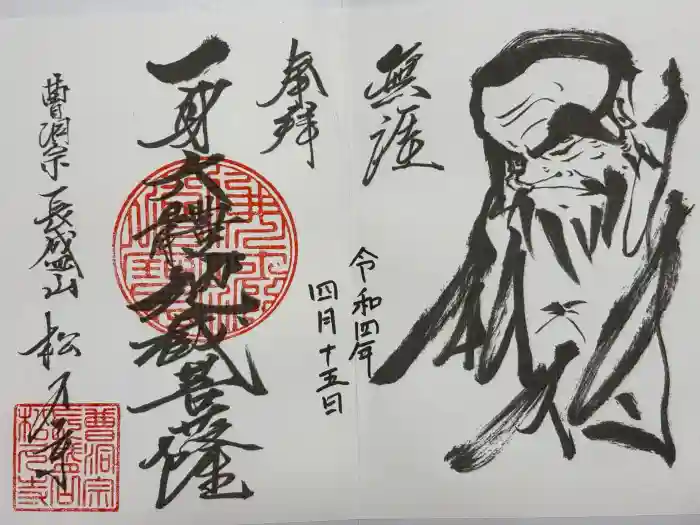 無涯
令和四年
四月十五日
奉拝
一身六體地蔵菩薩
曹洞宗長盛山松石寺
曹洞宗
長盛山
松石寺